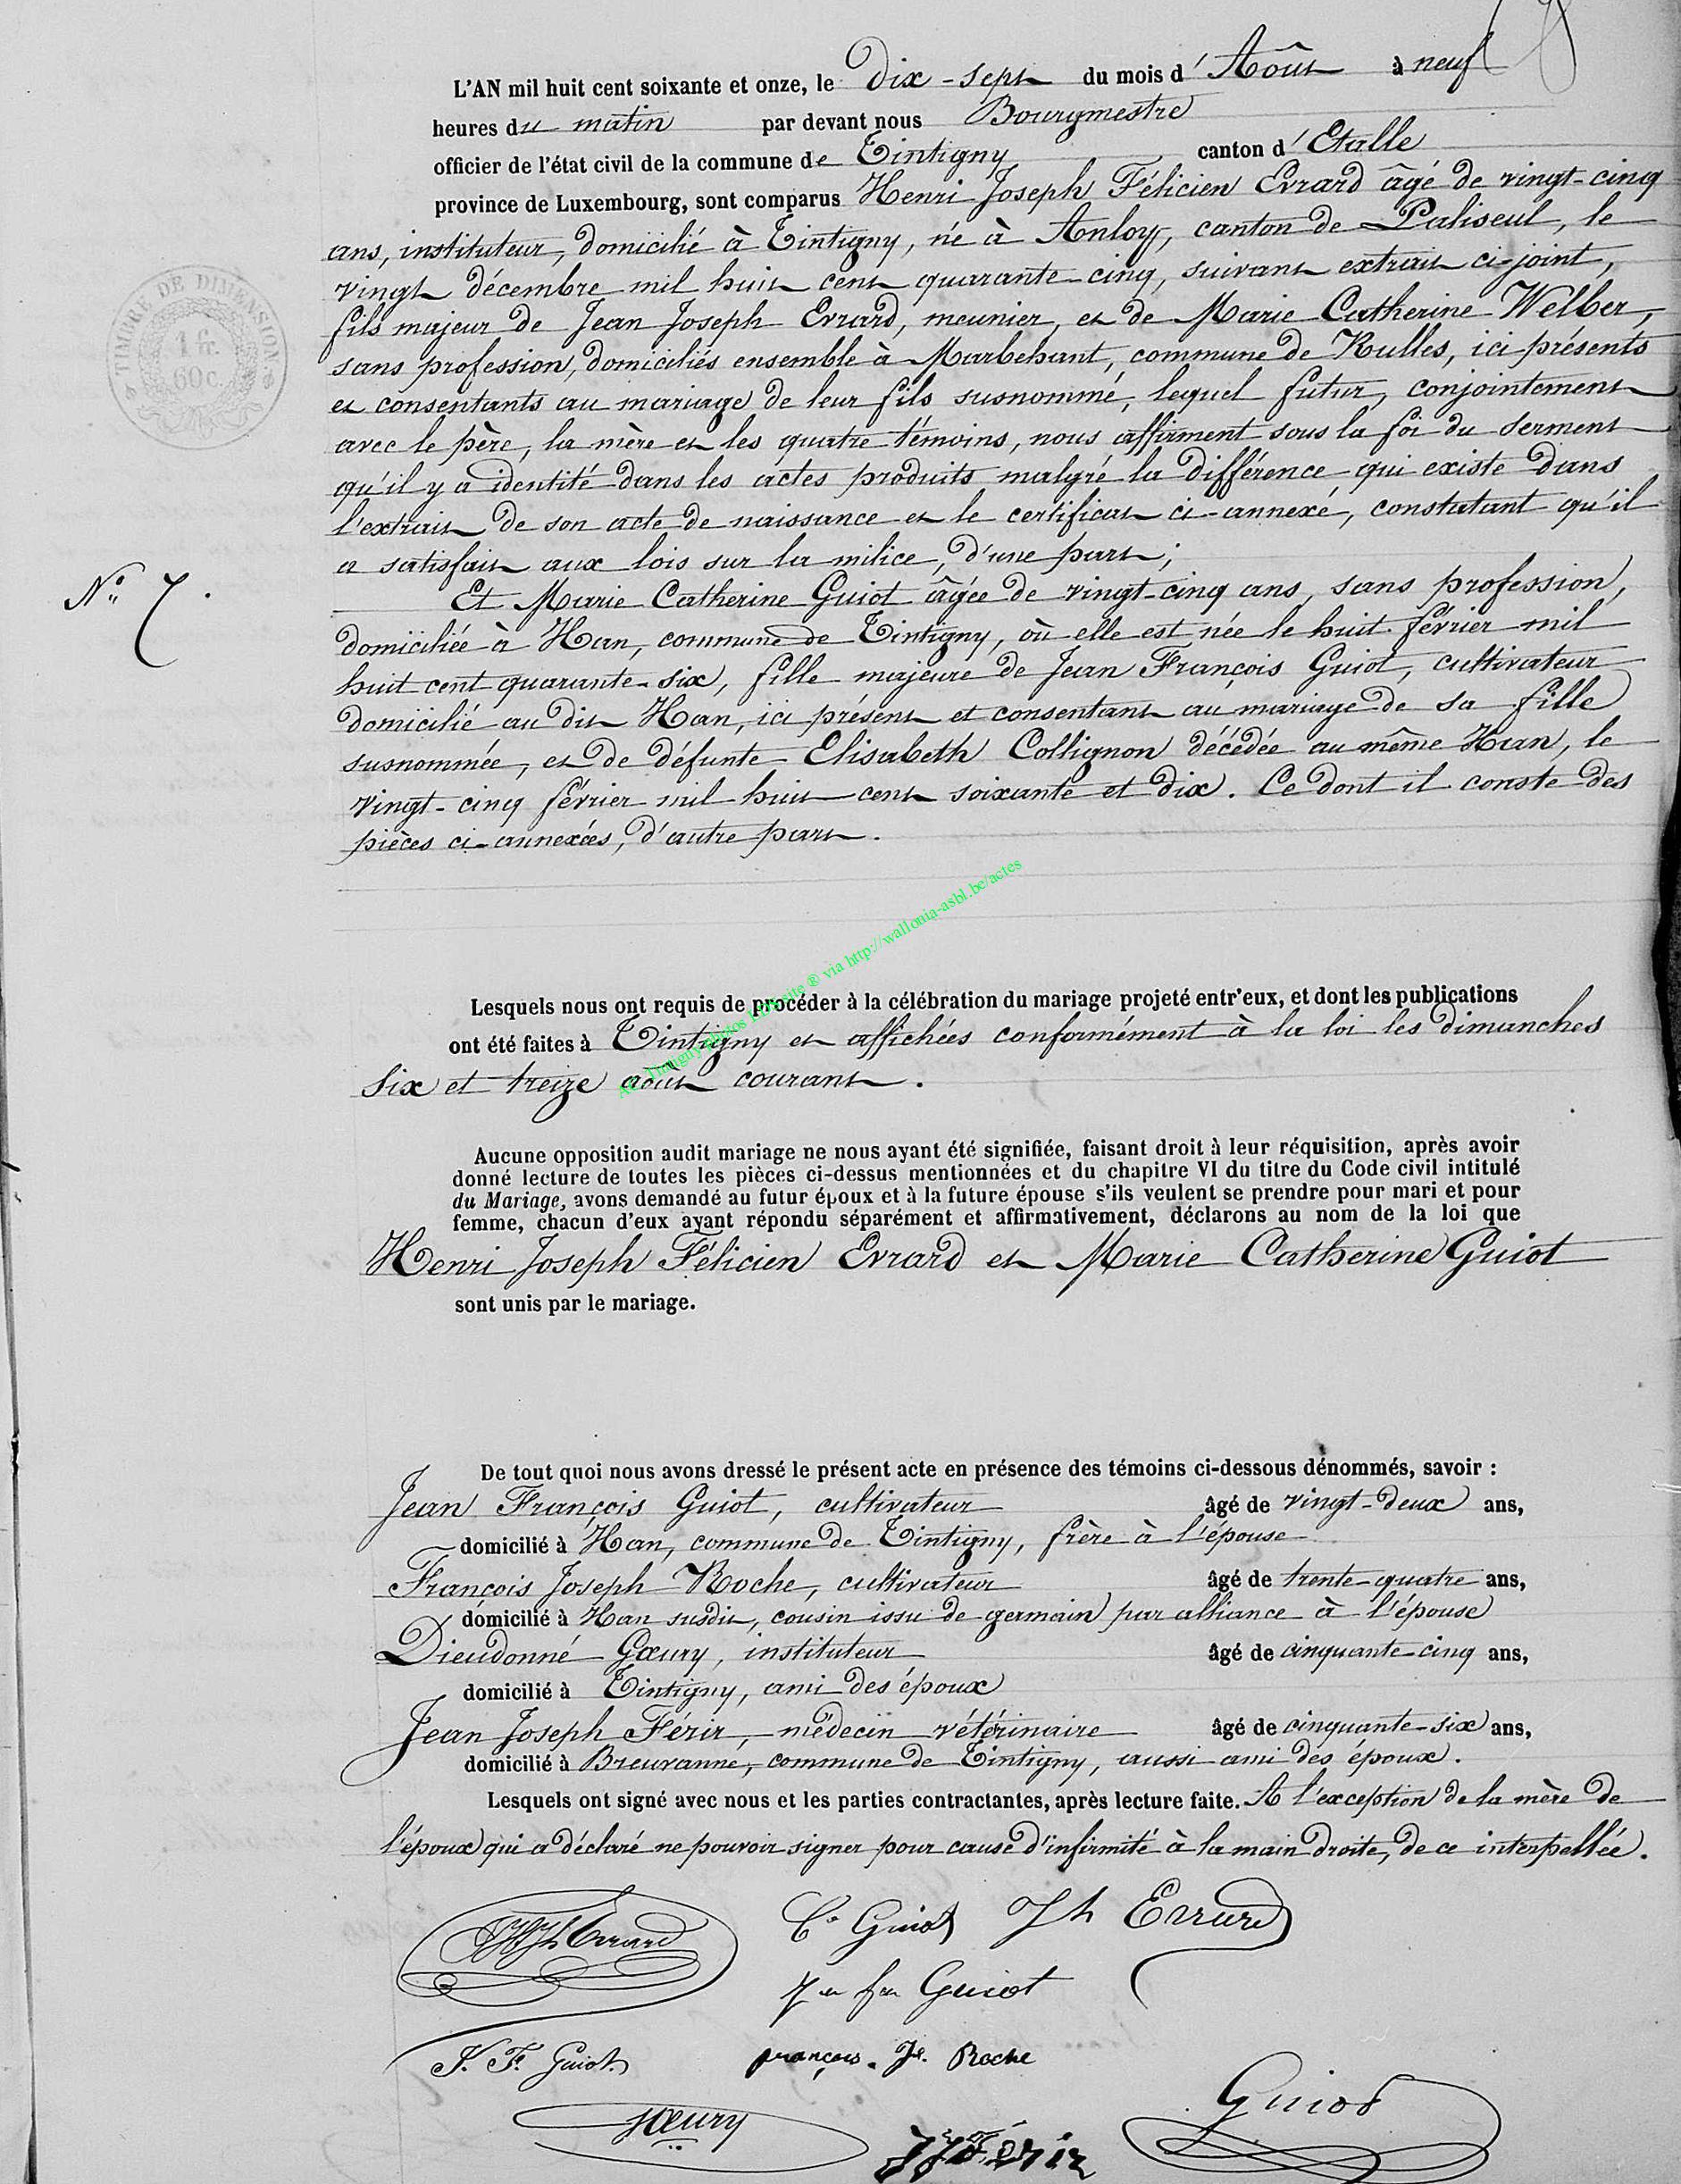 L'AN mil huit cent soixante et onze, le dix-sept du mois d'Août à neuf
heures du matin par devant nous Bourgmestre
officier de l'état civil de la commune de Tintigny canton d'Etalle
province de Luxembourg, sont comparus Henri Joseph Félicien Evrard âgé de vingt-cinq
ans, instituteur, domicilié à Tintigny, né à Anloy, canton de Paliseul, le
vingt décembre mil huit cent quarante-cinq, suivant extrait ci-joint,
fils majeur de Jean Joseph Evrard, meunier, et de Marie Catherine Welber,
sans profession, domiciliés ensemble à Marbehant, commune de Rulles, ici présents
et consentants au mariage de leur fils susnommé, lequel futur, conjointement
avec le père, la mère et les quatre témoins, nous affirment sous la foi du serment
qu'il y a identité dans les actes produits malgré la différence qui existe dans
l'extrait de son acte de naissance et le certificat ci-annexé, constatant qu'il
a satisfait aux lois sur la milice, d'une part;
N° 7.
Et Marie Catherine Guiot âgée de vingt-cinq ans, sans profession,
domiciliée à Han, commune de Tintigny, où elle est née le huit février mil
huit cent quarante-six, fille majeure de Jean François Guiot, cultivateur
domicilié au dit Han, ici présent et consentant au mariage de sa fille
susnommée, et de défunte Elisabeth Collignon décédée au même Han, le
vingt-cinq février mil huit cent soixante et dix. Ce dont il conste des
pièces ci-annexées, d'autre part.
TIMBRE DE DIMENSION
1 fr.
60 c.
via http://wallonia-asbl.be/actes
Lesquels nous ont requis de procéder à la célébration du mariage projeté entr'eux, et dont les publications
ont été faites à Tintigny et affichées conformément à la loi les dimanches
six et treize août courant.
Aucune opposition audit mariage ne nous ayant été signifiée, faisant droit à leur réquisition, après avoir
donné lecture de toutes les pièces ci-dessus mentionnées et du chapitre VI du titre du Code civil intitulé
du Mariage, avons demandé au futur époux et à la future épouse s'ils veulent se prendre pour mari et pour
femme, chacun d'eux ayant répondu séparément et affirmativement, déclarons au nom de la loi que
Henri Joseph Félicien Evrard et Marie Catherine Guiot
sont unis par le mariage.
De tout quoi nous avons dressé le présent acte en présence des témoins ci-dessous dénommés, savoir :
Jean François Guiot, cultivateur âgé de vingt-deux ans,
domicilié à Han, commune de Tintigny, frère à l'épouse
François Joseph Roche, cultivateur âgé de trente-quatre ans,
domicilié à Han susdit, cousin issu de germain par alliance à l'épouse
Dieudonné Gœury, instituteur âgé de cinquante-cinq ans,
domicilié à Tintigny, ami des époux
Jean Joseph Férir, médecin vétérinaire âgé de cinquante-six ans,
domicilié à Breuvanne, commune de Tintigny, aussi ami des époux.
Lesquels ont signé avec nous et les parties contractantes, après lecture faite. A l'exception de la mère de
l'époux qui a déclaré ne pouvoir signer pour cause d'infirmité à la main droite, de ce interpellée.
Evrard C. Guiot Jh Evrard
Guiot
J. F. Guiot françois. Jh. Roche
Gœury JJ Férir Guiot